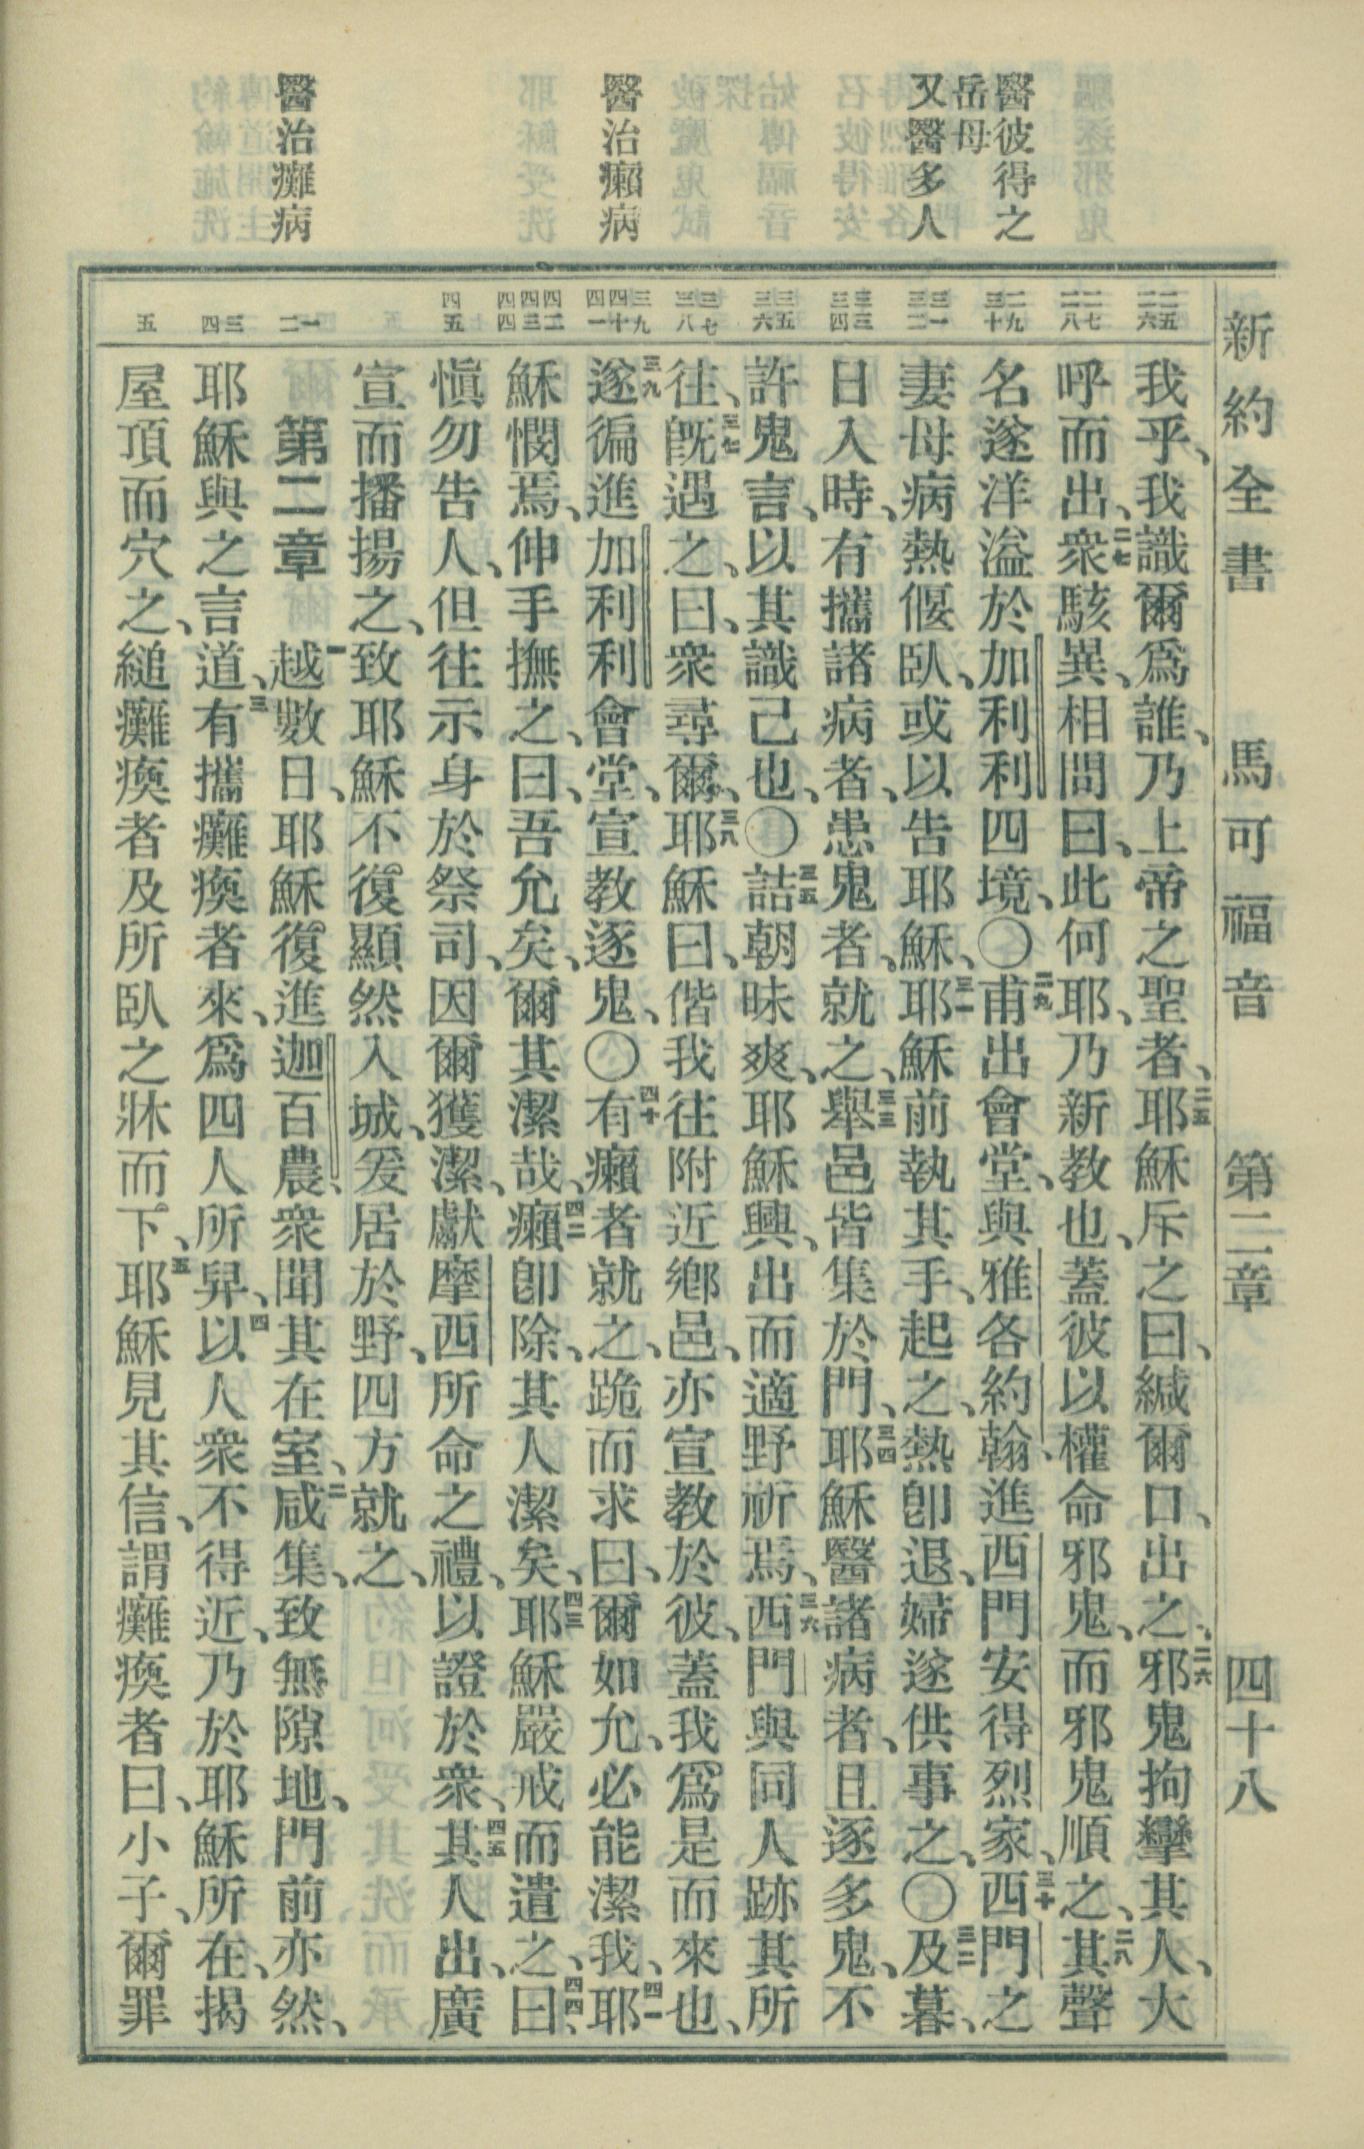 新約全書　馬可福音　第二章　四十八
醫彼得之
岳母
又醫多人
醫治癩病
醫治癱病
二五 二六
二七 二八
二九 三十
三一 三二
三三 三四
三五 三六
三七 三八
三九 四十 四一
四二 四三 四四
四五
一 二
三 四
五
我乎、我識爾爲誰、乃上帝之聖者、二五耶穌斥之曰、緘爾口、出之、二六邪鬼拘攣其人、大
呼而出、二七衆駭異、相問曰、此何耶、乃新教也、蓋彼以權命邪鬼、而邪鬼順之、二八其聲
名遂洋溢於加利利四境、〇二九甫出會堂、與雅各約翰、進西門安得烈家、三十西門之
妻母病熱偃臥、或以告耶穌、三一耶穌前執其手、起之、熱卽退、婦遂供事之、〇三二及暮、
日入時、有攜諸病者、患鬼者、就之、三三舉邑皆集於門、三四耶穌醫諸病者、且逐多鬼、不
許鬼言、以其識己也、〇三五詰朝昧爽、耶穌興、出而適野祈焉、三六西門與同人跡其所
往、三七旣遇之、曰、衆尋爾、三八耶穌曰、偕我往附近鄉邑、亦宣教於彼、蓋我爲是而來也、
三九遂徧進加利利會堂、宣教逐鬼、〇四十有癩者就之、跪而求曰、爾如允、必能潔我、四一耶
穌憫焉、伸手撫之、曰、吾允矣、爾其潔哉、四二癩卽除、其人潔矣、四三耶穌嚴戒而遣之、四四曰、
愼勿告人、但往示身於祭司、因爾獲潔、獻摩西所命之禮、以證於衆、四五其人出、廣
宣而播揚之、致耶穌不復顯然入城、爰居於野、四方就之、
第二章　一越數日、耶穌復進迦百農、衆聞其在室、二咸集、致無隙地、門前亦然、
耶穌與之言道、三有攜癱瘓者來、爲四人所舁、四以人衆不得近、乃於耶穌所在、揭
屋頂而穴之、縋癱瘓者及所臥之牀而下、五耶穌見其信、謂癱瘓者曰、小子、爾罪